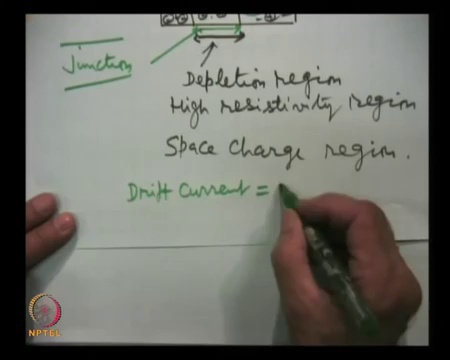 Junction
Depletion region
High resistivity region
Space Charge region.
Drift Current =
NPTEL